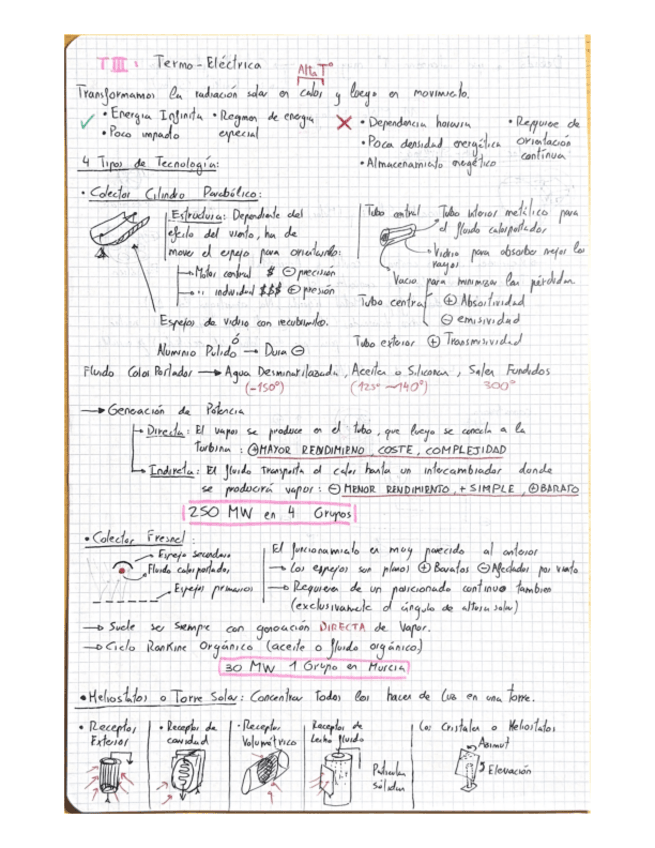 TIII: Termo-Eléctrica
Alta Tº
Transformamos la radiación solar en calor y luego en movimiento.
• Energía Infinita • Regimen de energía especial
• Poco impacto
• Dependencia horaria • Requiere de orientación continua
• Poca densidad energética
• Almacenamiento energético
4 Tipos de Tecnología:
• Colector Cilindro Parabólico:
Estructura: Dependiente del
efecto del viento, ha de
mover el espejo para orientarlo:
→ Motor central $ ⊖ precisión
→ " individual $$$ ⊕ presión
Espejos de vidrio con recubrimiento.
ó
Aluminio Pulido → Dura ⊖
Tubo central Tubo interior metálico para
el fluido calorportador
Vidrio para absorber mejor los
rayos
Vacío para minimizar las pérdidas
Tubo central ⊕ Absortividad
⊖ emisividad
Tubo exterior ⊕ Transmisividad
Fluido CalorPortador → Agua Desmineralizada, Aceites o Siliconas, Sales Fundidas
(-150º) (125º ~140º) 300º
→ Generación de Potencia
→ Directa: El vapor se produce en el tubo, que luego se conecta a la
Turbina: ⊕MAYOR RENDIMIENO, COSTE, COMPLEJIDAD
→ Indirecta: El fluido transporta el calor hasta un intercambiador donde
se producirá vapor: ⊖ MENOR RENDIMIENTO, + SIMPLE, ⊕BARATO
250 MW en 4 Grupos
• Colector Fresnel:
Espejo secundario
Fluido calorportador
Espejos primarios
El funcionamiento en muy parecido al anterior
→ Los espejos son planos ⊕ Baratos ⊖ Afectados por viento
→ Requieren de un posicionado continuo tambien
(exclusivamente el ángulo de altura solar)
→ Suele ser siempre con generación DIRECTA de Vapor.
→ Ciclo Rankine Orgánico (aceite o fluido orgánico)
30 MW 1 Grupo en Murcia
• Heliostatos o Torre Solar: Concentrar Todos los haces de Luz en una torre.
• Receptor
Exterior
• Receptor de
cavidad
• Receptor
Volumétrico
Receptor de
Lecho fluido
Partículas
sólidas
Los Cristales o Heliostatos
Azimut
Elevación